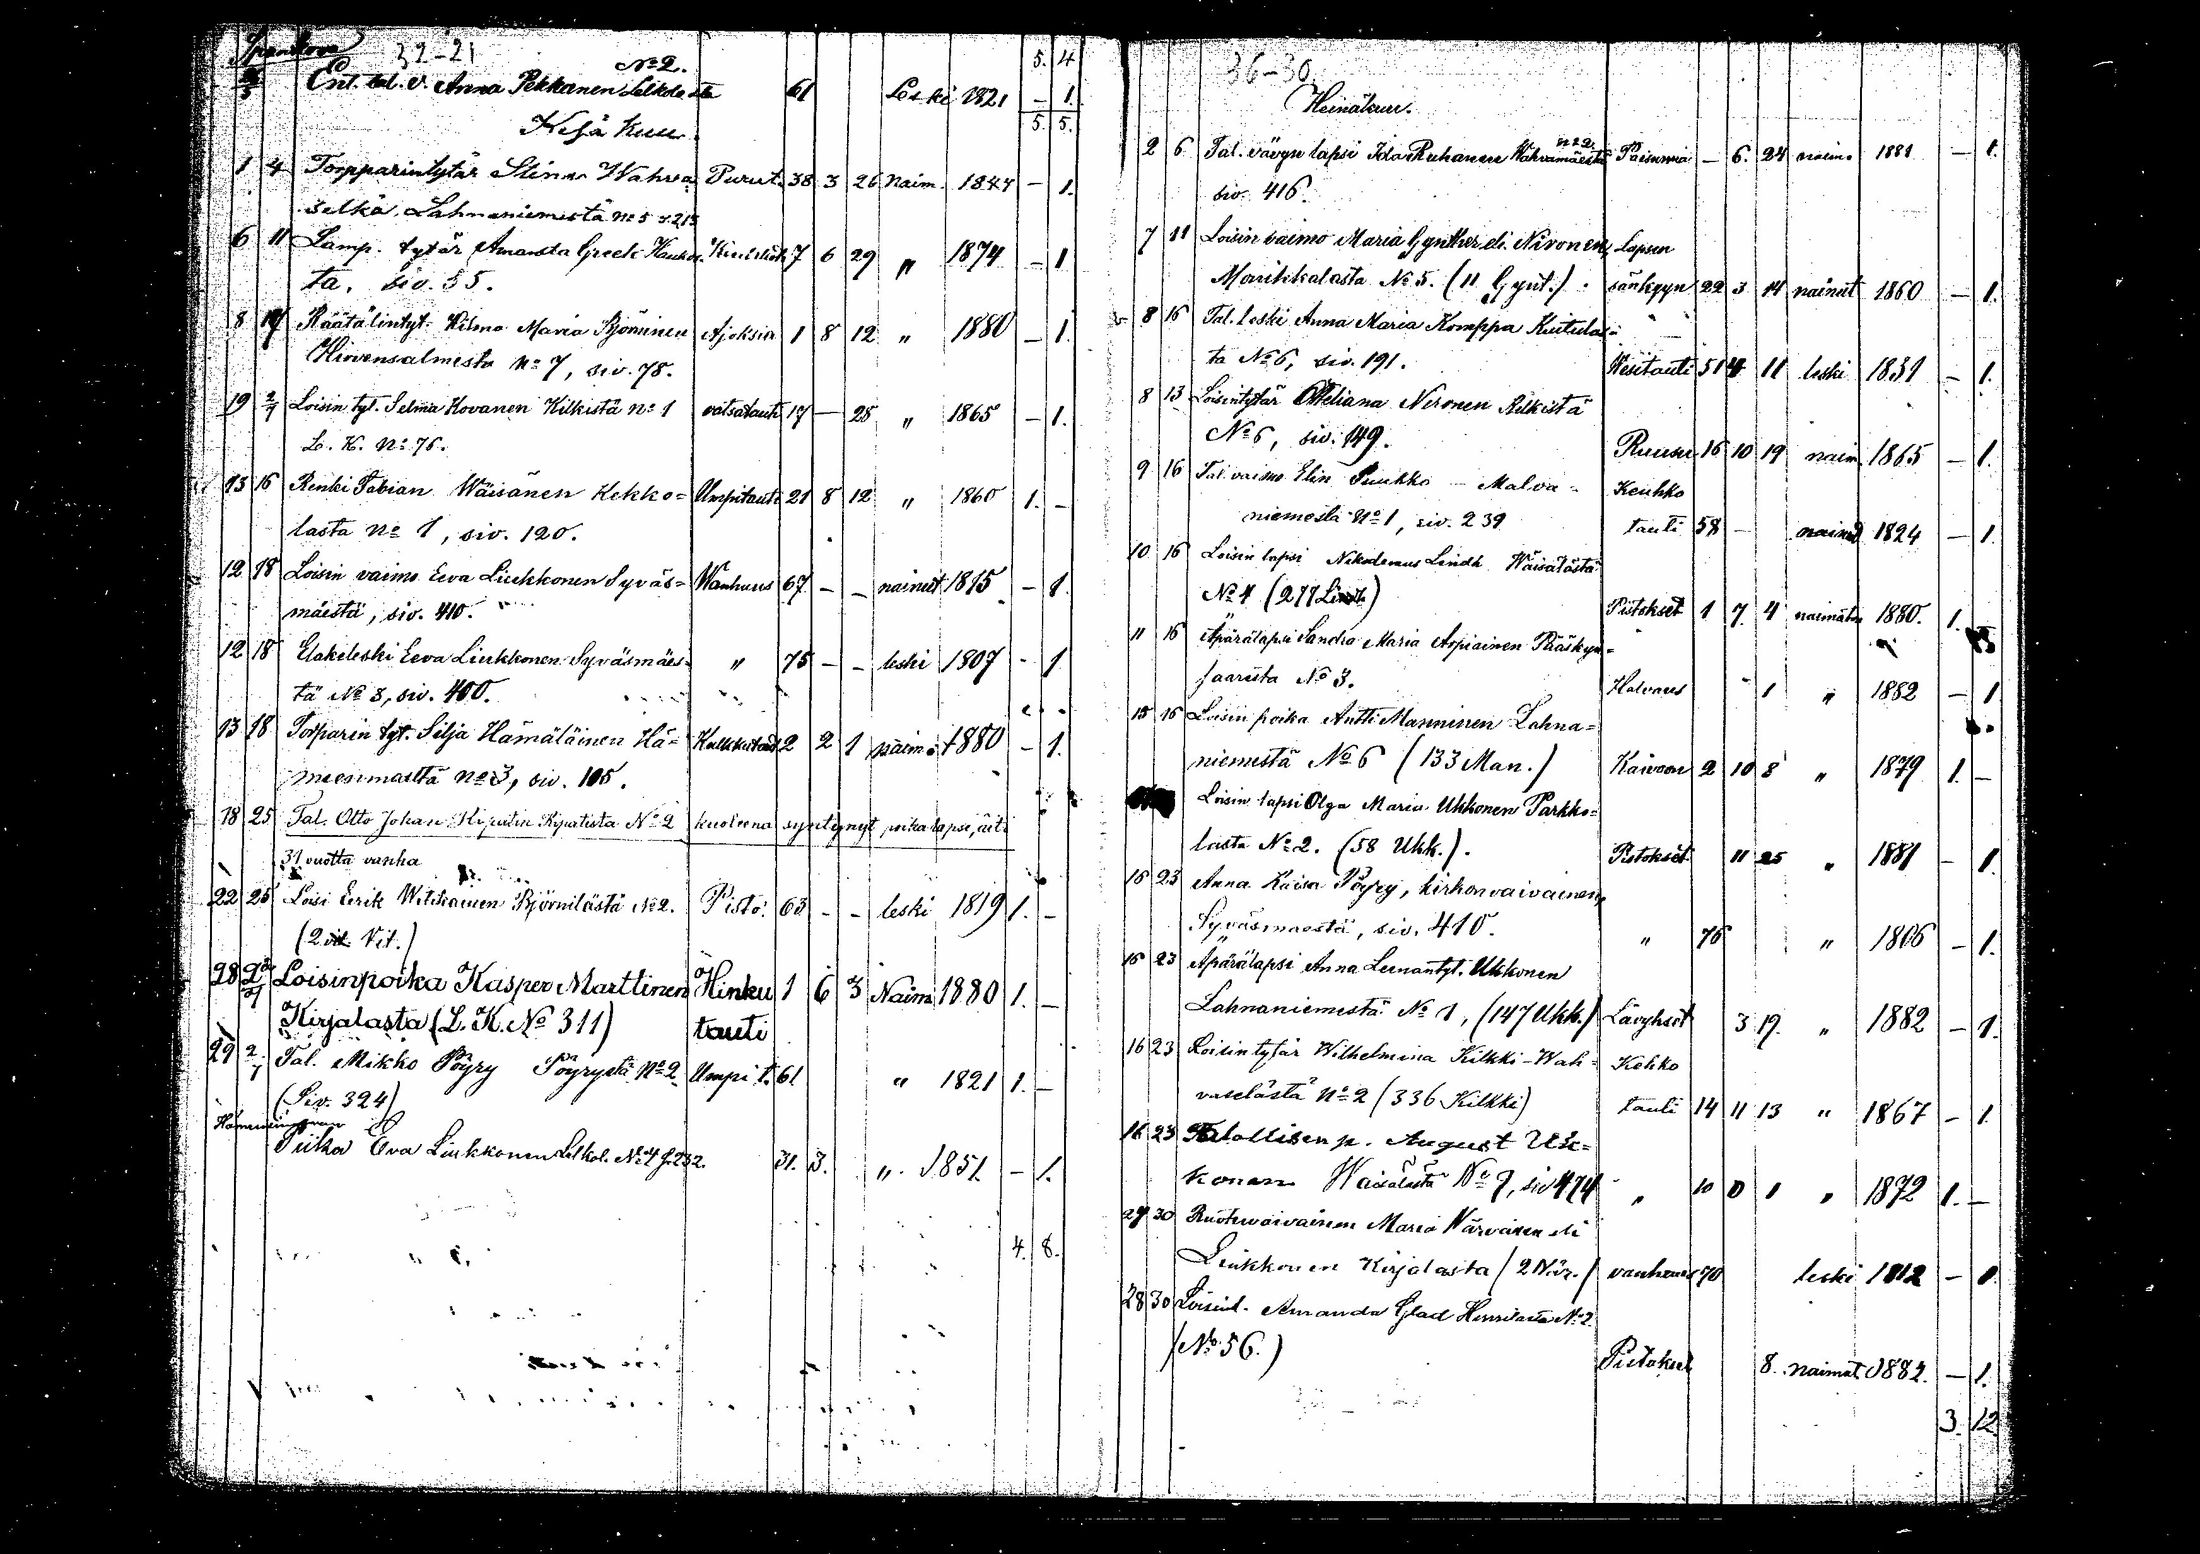 32-21
5. 4
No 2.
Ent. tal. v. Anna Pekkanen Lelkolasta 61 Leski 1821 – 1
5. 5.
Kesä Kuu
1 4 Torpparintytär Stina Wahva= Purut. 38 3 26 naim. 1844 – 1.
selkä Lahnaniemestä No 5 s. 213
6 11 Lamp. tytär Amanda Greek 7 6 29 " 1874 – 1
ta. siv. 55.
8 17 Räätälintyt. Hilma Maria Björninen Ajoksia 1 8 12 " 1880 – 1.
Hirvensalmesta No 7, siv. 78.
19 2/7 Loisin tyt. Selma Hovanen Kilkistä No 1 vatsatauti 17 – 25 " 1865 – 1.
L. K. No 76.
13 16 Renki Fabian Wäisänen Kekko= Umpitauti 21 8 12 " 1860 1. –
lasta No 1, siv. 120.
12 18 Loisin vaimo Eeva Liukkonen Syväs= Wanhuus 67 – – nainut 1815 – 1.
mäestä, siv. 410.
12 18 Eläkeleski Eeva Liukkonen Syväsmäes= " 75 – – leski 1807 – 1
tä No 8, siv. 400.
13 18 Torparin tyt. Silja Hämäläinen Hä= Kulkkutaud 2 2 1 naim. 1880 – 1.
meenmaalta No 3, siv. 105.
18 25 Tal. Otto Johan Kiputin Kipatista No 2 kuolleena syntynyt poikalapsi, äiti
31 vuotta vanha
22 25 Loisi Eerik Witikainen Björnilästä No 2. Pisto. 63 – – leski 1819 1. –
(2 Vit.)
28 2/7 Loisinpoika Kasper Marttinen Hinku 1 6 3 Naim 1880 1. –
Kirjalasta (L. K. No 311) tauti
29 2/7 Tal. Mikko Pöyry Pöyrystä No 2 Umpi t. 61 " 1821 1. –
(Siv. 324)
Piika Eva Liukkonen Lelkol. No 4 232. 31. 3. " 1851 – 1.
4. 8.
36-30.
Heinäkuu.
2 6 Tal. vävyn lapsi Ida Ruhanen Wahvamäestä No 2 Painumia – 6. 24 naim. 1881 – 1.
siv. 416.
7 11 Loisin vaimo Maria Gynther eli Nironen Lapsen
Moinikkalasta No 5. (11 Gynt.) sänkyyn 22 3 14 nainut 1860 – 1.
8 16 Tal. leski Anna Maria Komppa Kuitulas=
ta No 6, siv. 191. Wesitauti 51 4 11 leski 1831 – 1.
8 13 Loisintytär Meliana Nironen Kilkistä
No 6, siv. 149. Ruusu 16 10 19 naim. 1865 – 1.
9 16 Tal. vaimo Elin Puukko Malva= Keuhko
niemestä No 1, siv. 239 tauti 58 – nainut 1824 – 1.
10 16 Loisin lapsi Nikodemus Lindh Wäisälästä
No 4 (277 Lindh) Pistokset 1 7 4 naimaton 1880. 1.
11 16 Äpärälapsi Sandra Maria Arpiainen Pääskyn=
saaresta No 3. Halvaus – 1 " 1882 – 1
15 16 Loisin poika Antti Manninen Lahna=
niemestä No 6 (133 Man.) Kaivoon 2 10 8 " 1879 1. –
Loisin lapsi Olga Maria Ukkonen Parkko=
lasta No 2. (58 Ukk.). Pistokset 11 25 " 1881 – 1.
15 23 Anna Kaisa Pöyry, kirkonvaivainen
Syväsmaestä, siv. 410. " 76 " 1806 – 1.
15 23 Äpärälapsi Anna Leenantyt. Ukkonen
Lahnaniemestä No 1, (147 Ukk.) Lävykset 3 19. " 1882 – 1.
16 23 Loisin tytär Wilhelmina Kilkki Wah= Kehko
vaselästä No 2 (336 Kilkki) tauti 14 11 13 " 1867 – 1.
16 23 Talollisen p. August Uk=
konen Waisälästä No 7, siv 474 " 10 0 1 " 1872 1. –
27 30 Ruotuvaivainen Maria Närvänen eli
Liukkonen Kirjalasta (2 När.) vanhuus 70 leski 1812 – 1.
28 30 Loisint. Amanda Glad No 2
(No 56.) Pistokset 8. naimat. 1882. – 1.
3. 12